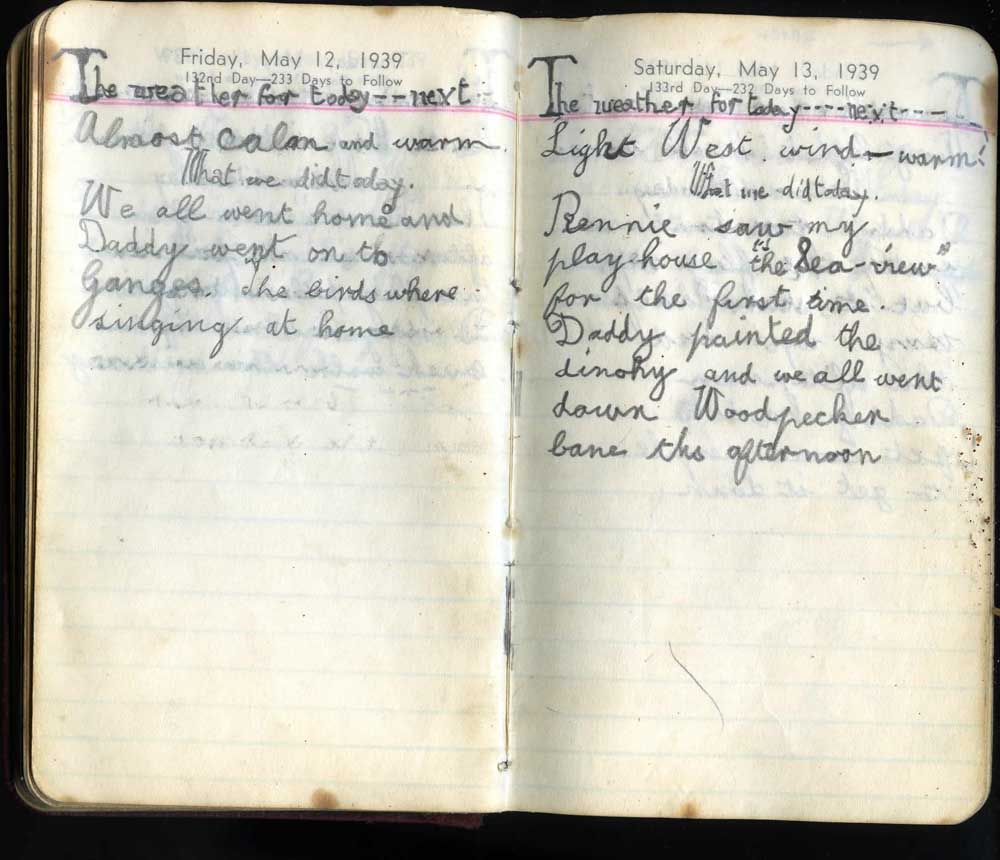 Friday, May 12, 1939
132nd Day—233 Days to Follow
The weather for today--next
Almost calm and warm.
What we did today.
We all went home and
Daddy went on to
Ganges. The birds where
singing at home
Saturday, May 13, 1939
133rd Day—232 Days to Follow
The weather for today----next---
Light West wind—warm!
What we did today.
Rennie saw my
play house "the Sea-view"
for the first time.
Daddy painted the
dinghy and we all went
down Woodpecker
lane this afternoon